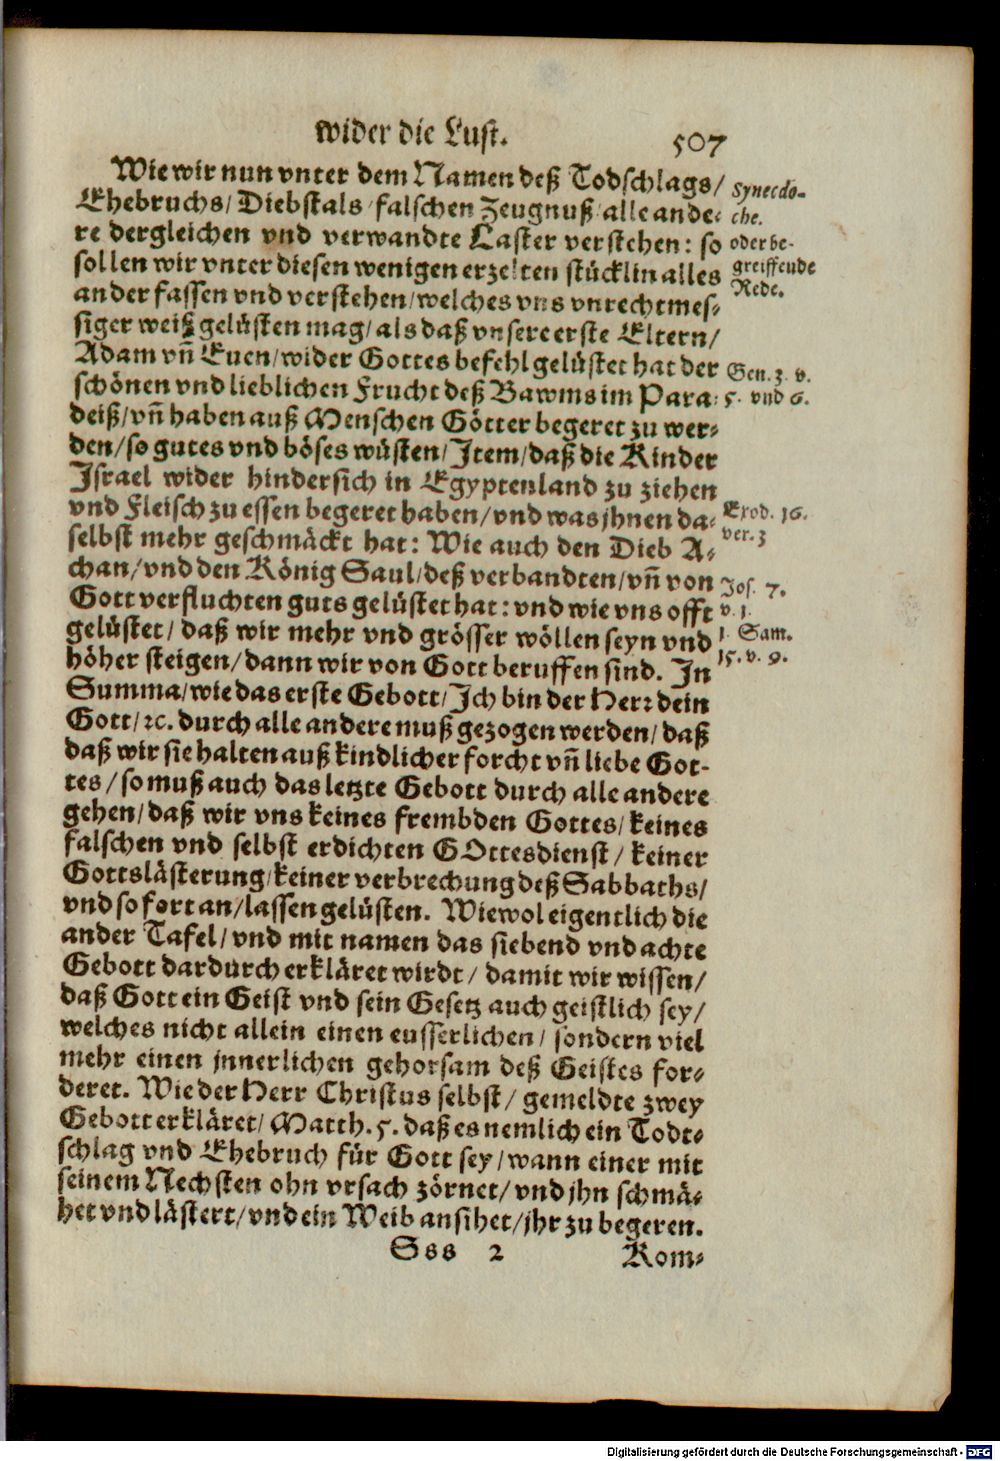 wider die Lust. 507
Wie wir nun vnter dem Namen deß Todschlags/
Ehebruchs/ Diebstals/ falschen Zeugnuß/ alle ande-
re dergleichen vnd verwandte Laster verstehen: so
sollen wir vnter diesen wenigen erzelten stücklin alles
ander fassen vnd verstehen/ welches vns vnrechtmes-
siger weiß gelüsten mag/ als daß vnsere erste Eltern/
Adam vñ Euen/ wider Gottes befehl gelüstet hat der
schönen vnd lieblichen Frucht deß Bawms im Para-
deiß/ vñ haben auß Menschen Götter begeret zu wer-
den/ so gutes vnd böses wüsten/ Item/ daß die Kinder
Israel wider hindersich in Egyptenland zu ziehen
vnd Fleisch zu essen begeret haben/ vnd was jhnen da-
selbst mehr geschmäckt hat: Wie auch den Dieb A-
chan/ vnd den König Saul/ deß verbandten/ vñ von
Gott verfluchten guts gelüstet hat: vnd wie vns offt
gelüstet/ daß wir mehr vnd grösser wöllen seyn vnd
höher steigen/ dann wir von Gott beruffen sind. In
Summa/ wie das erste Gebott/ Ich bin der Herr dein
Gott/ ꝛc. durch alle andere muß gezogen werden/ daß
daß wir sie halten auß kindlicher forcht vñ liebe Got-
tes/ so muß auch das letzte Gebott durch alle andere
gehen/ daß wir vns keines frembden Gottes/ keines
falschen vnd selbst erdichten GOttesdienst/ keiner
Gottslästerung/ keiner verbrechung deß Sabbaths/
vnd so fort an/ lassen gelüsten. Wiewol eigentlich die
ander Tafel/ vnd mit namen das siebend vnd achte
Gebott dardurch erkläret wirdt/ damit wir wissen/
daß Gott ein Geist vnd sein Gesetz auch geistlich sey/
welches nicht allein einen eusserlichen/ sondern viel
mehr einen jnnerlichen gehorsam deß Geistes for-
deret. Wie der Herr Christus selbst/ gemeldte zwey
Gebott erkläret/ Matth. 5. daß es nemlich ein Todt-
schlag vnd Ehebruch für Gott sey/ wann einer mit
seinem Nechsten ohn vrsach zörnet/ vnd jhn schmä-
het vnd lästert/ vnd ein Weib ansihet/ jhr zu begeren.
Sss 2 Kom-
Synecdo-
che.
oder be-
greiffende
Rede.
Gen. 3. v.
5. vnd 6.
Exod. 16.
ver. 3
Jos. 7.
v. 1.
1. Sam.
15. v. 9.
Digitalisierung gefördert durch die Deutsche Forschungsgemeinschaft - DFG